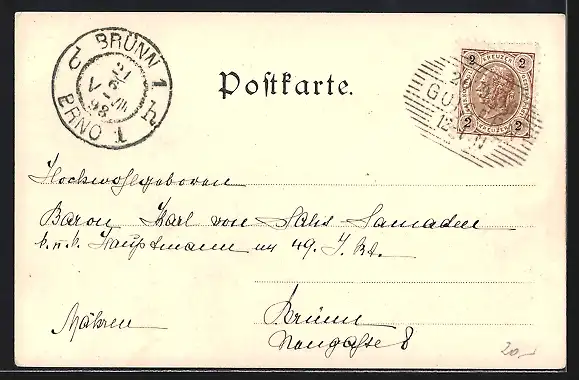 BRÜNN 1
21
6
V-VIII
98
BRNO 1
Postkarte.
2 KREUZER 2
2 KREUZER 2
2
GU
12
N
Hochwohlgeboren
Baron Karl von Salis Samaden
k. u. k. Hauptmann im 49. I. Rt.
Mähren
Brünn
Neugasse 8
20.-